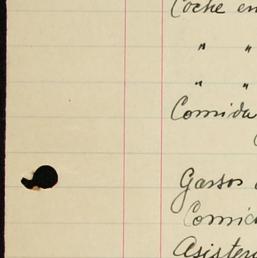 Coche en
" "
" "
Comida
Gastos
Comid
Asisten